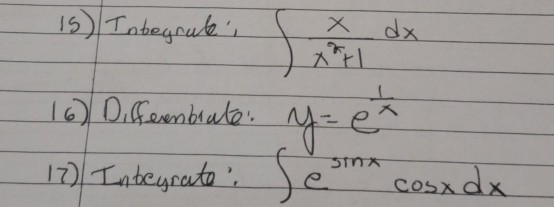 15) Integrate: ∫ x/(x²+1) dx
16) Differentiate: y = e^(1/x)
17) Integrate: ∫ e^(sinx) cosx dx